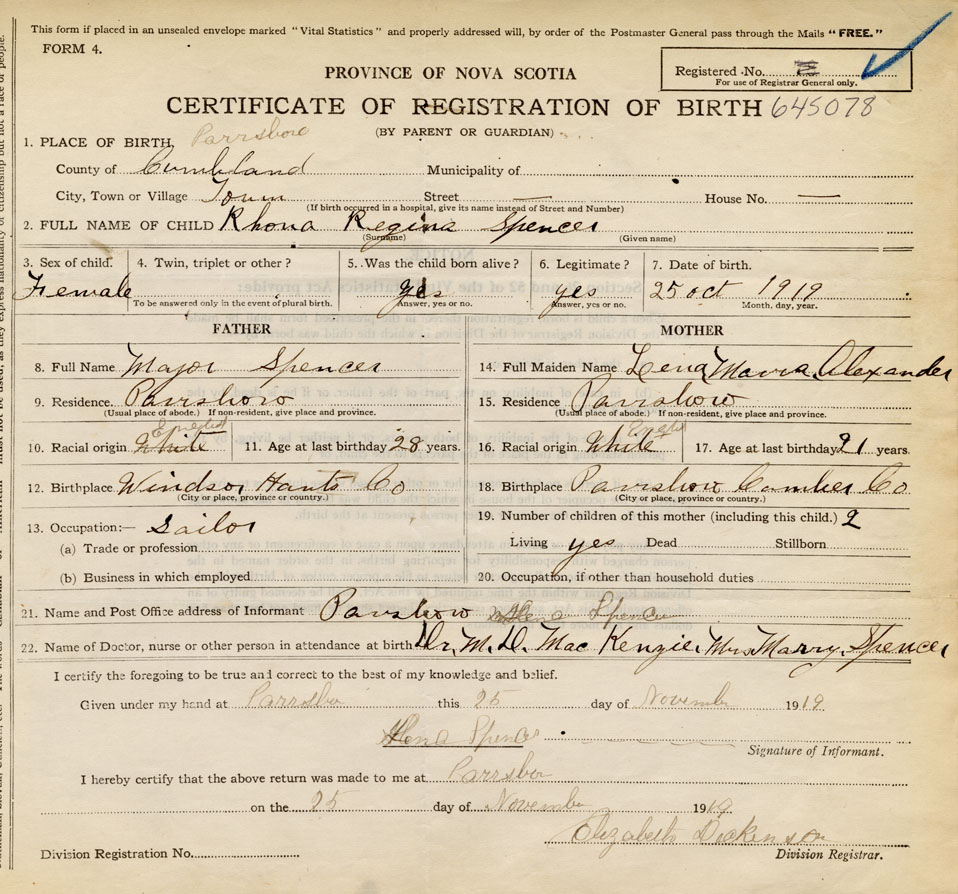 This form if placed in an unsealed envelope marked "Vital Statistics" and properly addressed will, by order of the Postmaster General pass through the Mails "FREE."
FORM 4.
Registered No.
For use of Registrar General only.
PROVINCE OF NOVA SCOTIA
CERTIFICATE OF REGISTRATION OF BIRTH 645078
(BY PARENT OR GUARDIAN)
1. PLACE OF BIRTH, Parrsboro
County of Cumbland Municipality of
City, Town or Village Town Street — House No. —
(If birth occurred in a hospital, give its name instead of Street and Number)
2. FULL NAME OF CHILD Rhona Regina Spencer
(Surname) (Given name)
3. Sex of child. 4. Twin, triplet or other? 5. Was the child born alive? 6. Legitimate? 7. Date of birth.
Female yes yes 25 oct 1919
To be answered only in the event of plural birth. Answer, yes or no. Answer, yes or no. Month, day, year.
FATHER MOTHER
8. Full Name Major Spencer 14. Full Maiden Name Lena Alexander
9. Residence. Parrsboro 15. Residence Parrsboro
(Usual place of abode.) If non-resident, give place and province. (Usual place of abode.) If non-resident, give place and province.
10. Racial origin White 11. Age at last birthday 28 years. 16. Racial origin White 17. Age at last birthday 21 years.
12. Birthplace Windsor Hants Co 18. Birthplace Co
(City or place, province or country.) (City or place, province or country.)
13. Occupation:— Sailor 19. Number of children of this mother (including this child.) 2
(a) Trade or profession Living yes Dead Stillborn
(b) Business in which employed 20. Occupation, if other than household duties
21. Name and Post Office address of Informant Spencer
22. Name of Doctor, nurse or other person in attendance at birth Dr. M. D. Mac Kenzie. Mrs Marry. Spencer
I certify the foregoing to be true and correct to the best of my knowledge and belief.
Given under my hand at Parrsboro this 25 day of November 1919
Lena Spencer
Signature of Informant.
I hereby certify that the above return was made to me at Parrsboro
on the 25 day of November 1919
Elizabeth Dickenson
Division Registration No. Division Registrar.